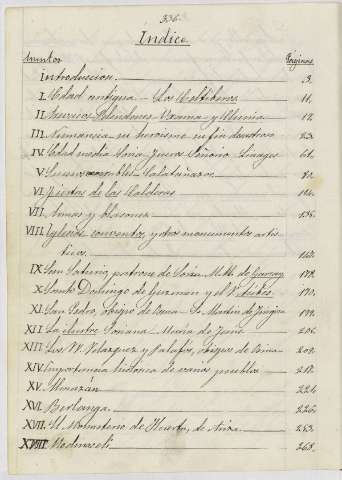 336
Índice
Asuntos Páginas
Introduccion 3.
I. Edad antigua - Los Celtíberos 11.
II. 17.
III. Numancia su heroismo su fin desastroso 23.
IV. Edad media Soria Fueros Señorio Linages 61.
V. Calatañazor 80.
VI. Fiestas de las Calderas 124.
VII. Armas y blasones
VIII. Iglesias conventos, y otros monumentos artis-
ticos
IX. San Saturio, patrono de Soria M. Mª de Garray 178.
X. Santo Domingo de Guzmán y el V. 190.
XI. San Pedro, obispo de Osma - S. Martin de Finojosa 199.
XII. La ilustre Soriana Maria de Jesus 206.
XIII. Los VV. Velazquez y Palafox, obispos de Osma 209.
XIV. Importancia historica de varios pueblos 218.
XV. Almazán 224
XVI. Berlanga 226.
XVII. El Monasterio de Huerta, de 253.
XVIII. Medinaceli 268.